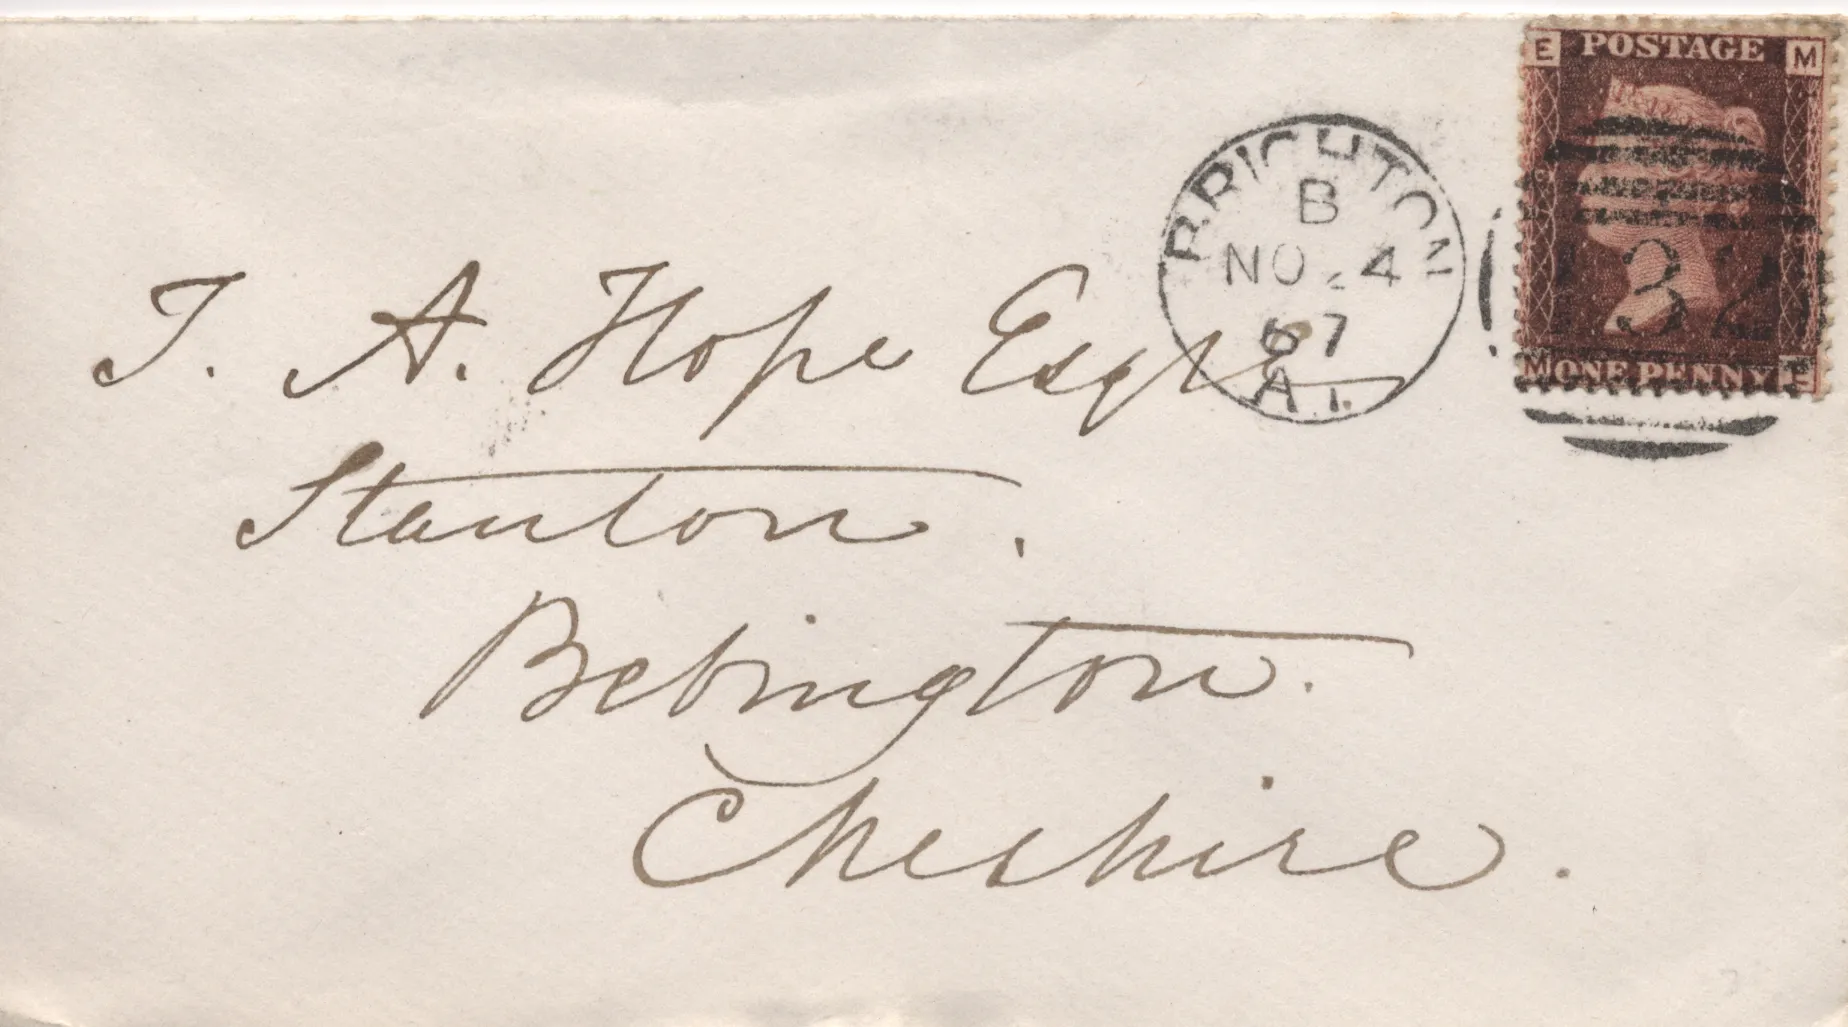 E POSTAGE M
BRIGHTON
B
NO 24
67
A1.
132
M ONE PENNY E
T. A. Hope Esqre
Stanton.
Bebington.
Cheshire.